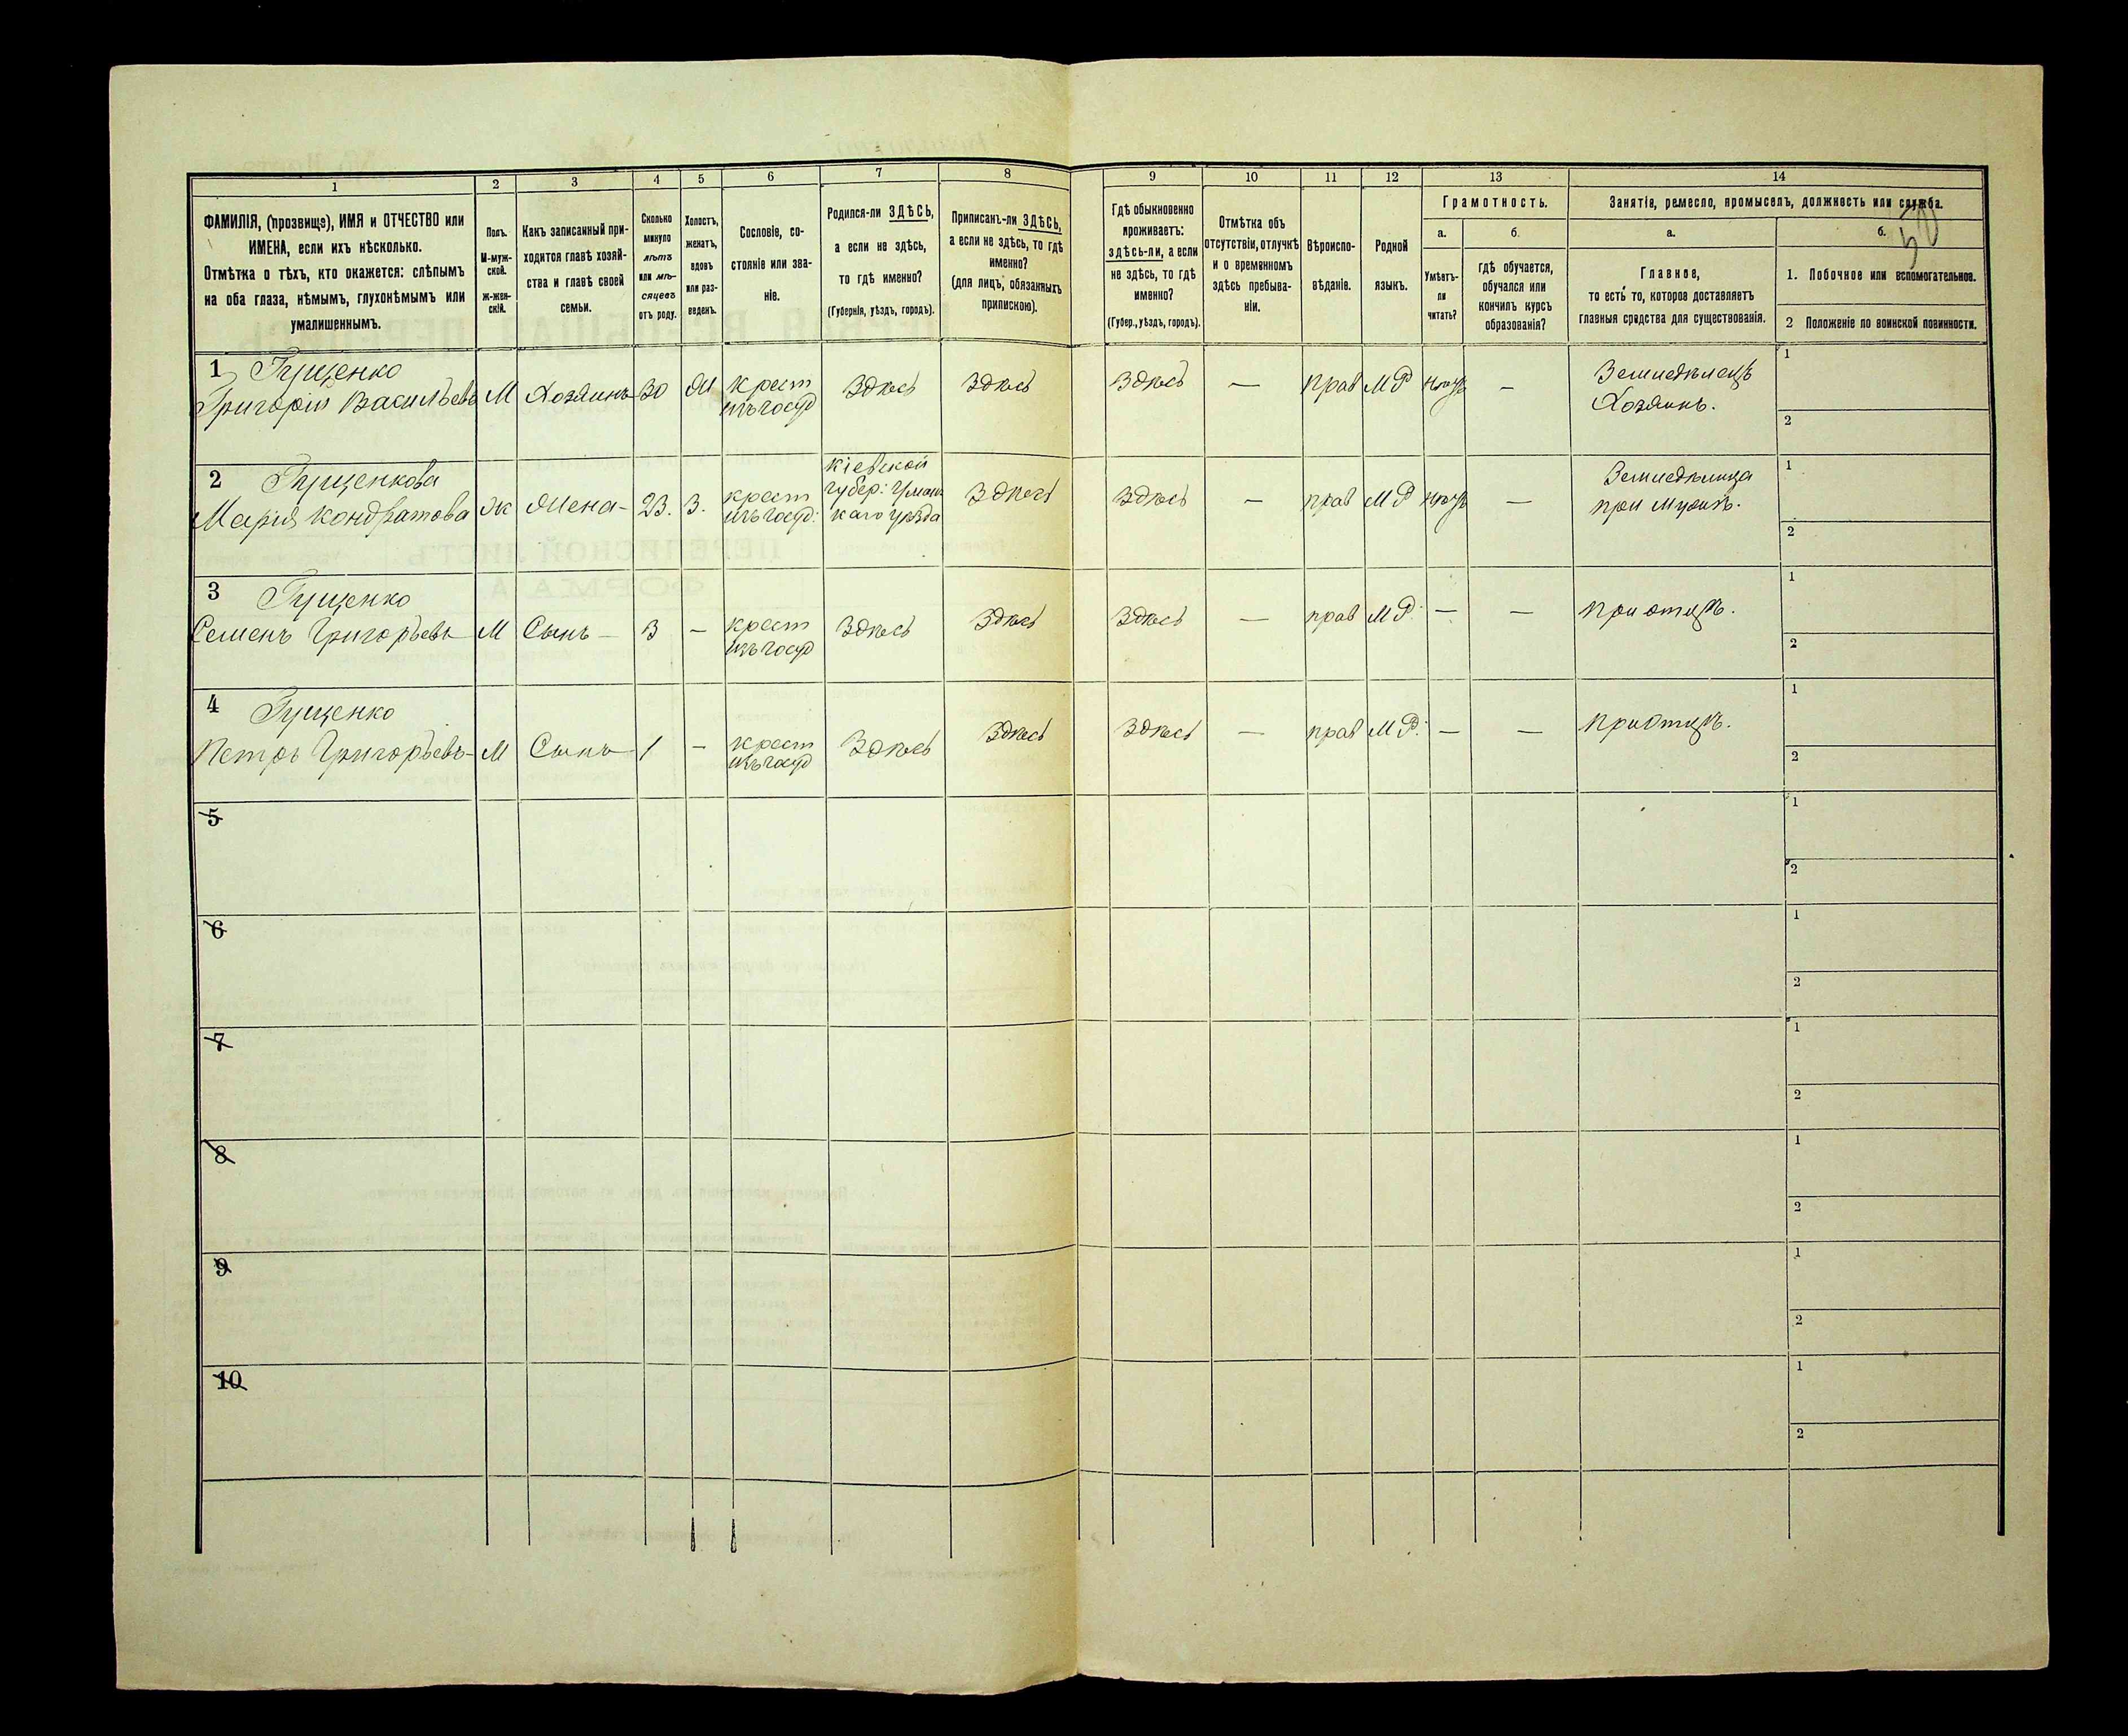 1 2 3 4 5 6 7 8 9 10 11 12 13 14
ФАМИЛІЯ, (прозвище), ИМЯ и ОТЧЕСТВО или
ИМЕНА, если ихъ нѣсколько.
Отмѣтка о тѣхъ, кто окажется: слѣпымъ
на оба глаза, нѣмымъ, глухонѣмымъ или
умалишеннымъ.
Полъ.
М-муж-
ской.
Ж-жен-
скій.
Какъ записанный при-
ходится главѣ хозяй-
ства и главѣ своей
семьи.
Сколько
минуло
лѣтъ
или мѣ-
сяцевъ
отъ роду.
Холостъ,
женатъ,
вдовъ
или раз-
веденъ.
Сословіе, со-
стояніе или зва-
ніе.
Родился-ли ЗДѢСЬ,
а если не здѣсь,
то гдѣ именно?
(Губернія, уѣздъ, городъ).
Приписанъ-ли ЗДѢСЬ,
а если не здѣсь, то гдѣ
именно?
(для лицъ, обязанныхъ
припискою).
Гдѣ обыкновенно
проживаетъ:
здѣсь-ли, а если
не здѣсь, то гдѣ
именно?
(Губер., уѣздъ, городъ).
Отмѣтка объ
отсутствіи, отлучкѣ
и о временномъ
здѣсь пребыва-
ніи.
Вѣроиспо-
вѣданіе.
Родной
языкъ.
Грамотность.
а.
Умѣетъ-
ли
читать?
б.
гдѣ обучается,
обучался или
кончилъ курсъ
образованія?
Занятіе, ремесло, промыселъ, должность или служба.
а.
Главное,
то есть то, которое доставляетъ
главныя средства для существованія.
б.
50
1. Побочное или вспомогательное.
2 Положеніе по воинской повинности.
1 Гущенко
Григорій Васильевъ М Хозяинъ 30 Ж крест
изъ госуд Здѣсь Здѣсь Здѣсь — прав МР —
Земледѣлецъ
Хозяинъ.
1
2
2 Гущенкова
Марія Кондратова Ж Жена- 23. З. крест
изъ госуд:
Кіевской
губер: Уман
каго уѣзда
Здѣсь Здѣсь — прав МР —
Земледѣлица
при мужѣ.
1
2
3 Гущенко
Семенъ Григорьевъ М Сынъ — 3 — крест
изъ госуд Здѣсь Здѣсь Здѣсь — прав МР. — — при отцѣ.
1
2
4 Гущенко
Петръ Григорьевъ- М Сынъ 1 — крест
изъ госуд Здѣсь Здѣсь Здѣсь — прав МР. — — при отцѣ.
1
2
5
1
2
6
1
2
7
1
2
8
1
2
9
1
2
10
1
2